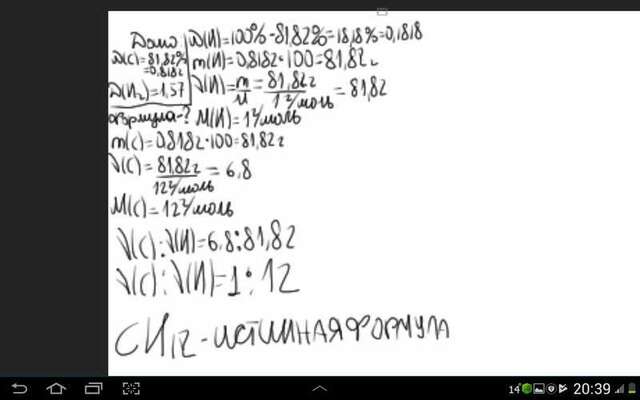 Дано
W(C)=81,82%
=0,8182
D(N₂)=1,57
формула-?
W(H)=100%-81,82%=18,18%=0,1818
m(H)=0,8182·100=81,82г
ν(H)=m/M=81,82г/1г/моль=81,82
M(H)=1г/моль
m(C)=0,8182·100=81,82г
ν(C)=81,82г/12г/моль=6,8
M(C)=12г/моль
ν(C):ν(H)=6,8:81,82
ν(C):ν(H)=1:12
CH₁₂-ИСТИННАЯ ФОРМУЛА
14
20:39